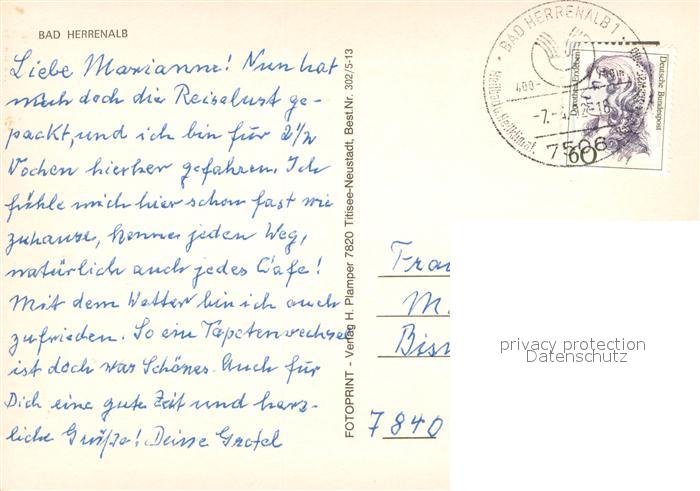 BAD HERRENALB
Liebe Marianne! Nun hat
mich doch die Reiselust ge-
packt, und ich bin für 2 1/2
Wochen hierher gefahren. Ich
fühle mich hier schon fast wie
zuhause, kenne jeden Weg,
natürlich auch jedes Cafe!
Mit dem Wetter bin ich auch
zufrieden. So ein Tapetenwechsel
ist doch was Schönes. Auch für
Dich eine gute Zeit und herz-
liche Grüße! Deine Gretel
FOTOPRINT - Verlag H. Plamper 7820 Titisee-Neustadt, Best.Nr. 302/5-13
BAD HERRENALB 1
7506
Deutsche Bundespost
60
Frau
M.
Bis
7840
privacy protection
Datenschutz